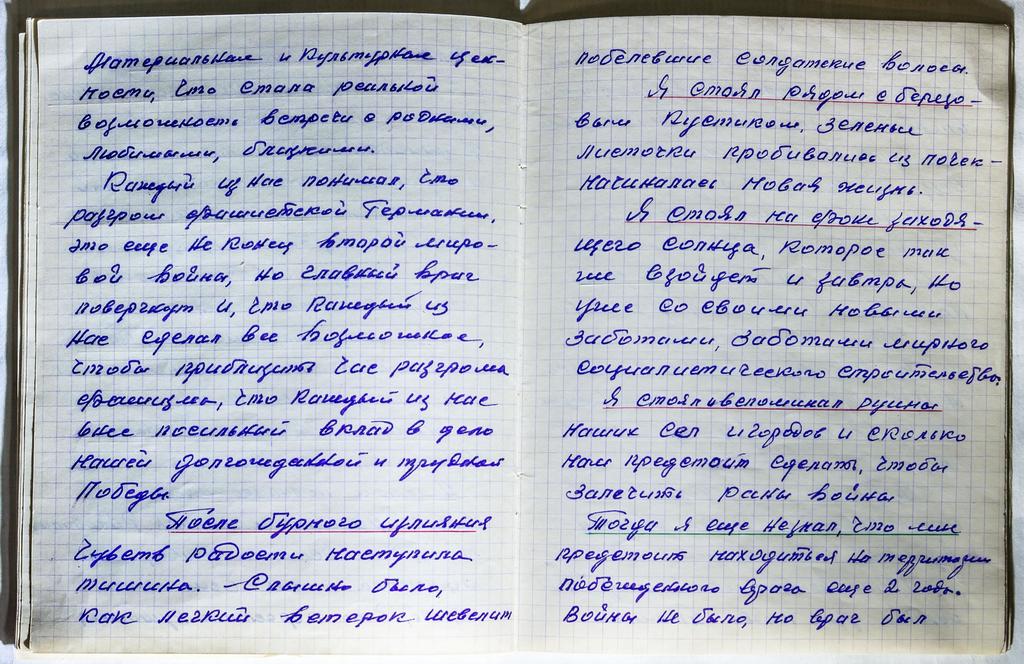 Материальные и культурные цен-
ности, что стала реальной
возможность встречи с родными,
любимыми, близкими.
Каждый из нас понимал, что
разгром фашистской Германии,
это еще не конец второй миро-
вой войны, но главный враг
повергнут и, что каждый из
нас сделал все возможное,
чтобы приблизить час разгрома
фашизма, что каждый из нас
внес посильный вклад в дело
нашей долгожданной и трудной
Победы
После бурного излияния
чувств радости наступила
тишина. Слышно было,
как легкий ветерок шевелит
побелевшие солдатские волосы.
Я стоял рядом с березо-
вым кустиком. Зеленые
листочки пробивались из почек-
начиналась новая жизнь.
Я стоял на фоне заходя-
щего солнца, которое так
же взойдет и завтра, но
уже со своими новыми
заботами, заботами мирного
социалистического строительства.
Я стоял и вспоминал руины
наших сел и городов и сколько
нам предстоит сделать, чтобы
залечить раны войны
Тогда я еще не знал, что мне
предстоит находиться на территории
побежденного врага еще 2 года.
Войны не было, но враг был